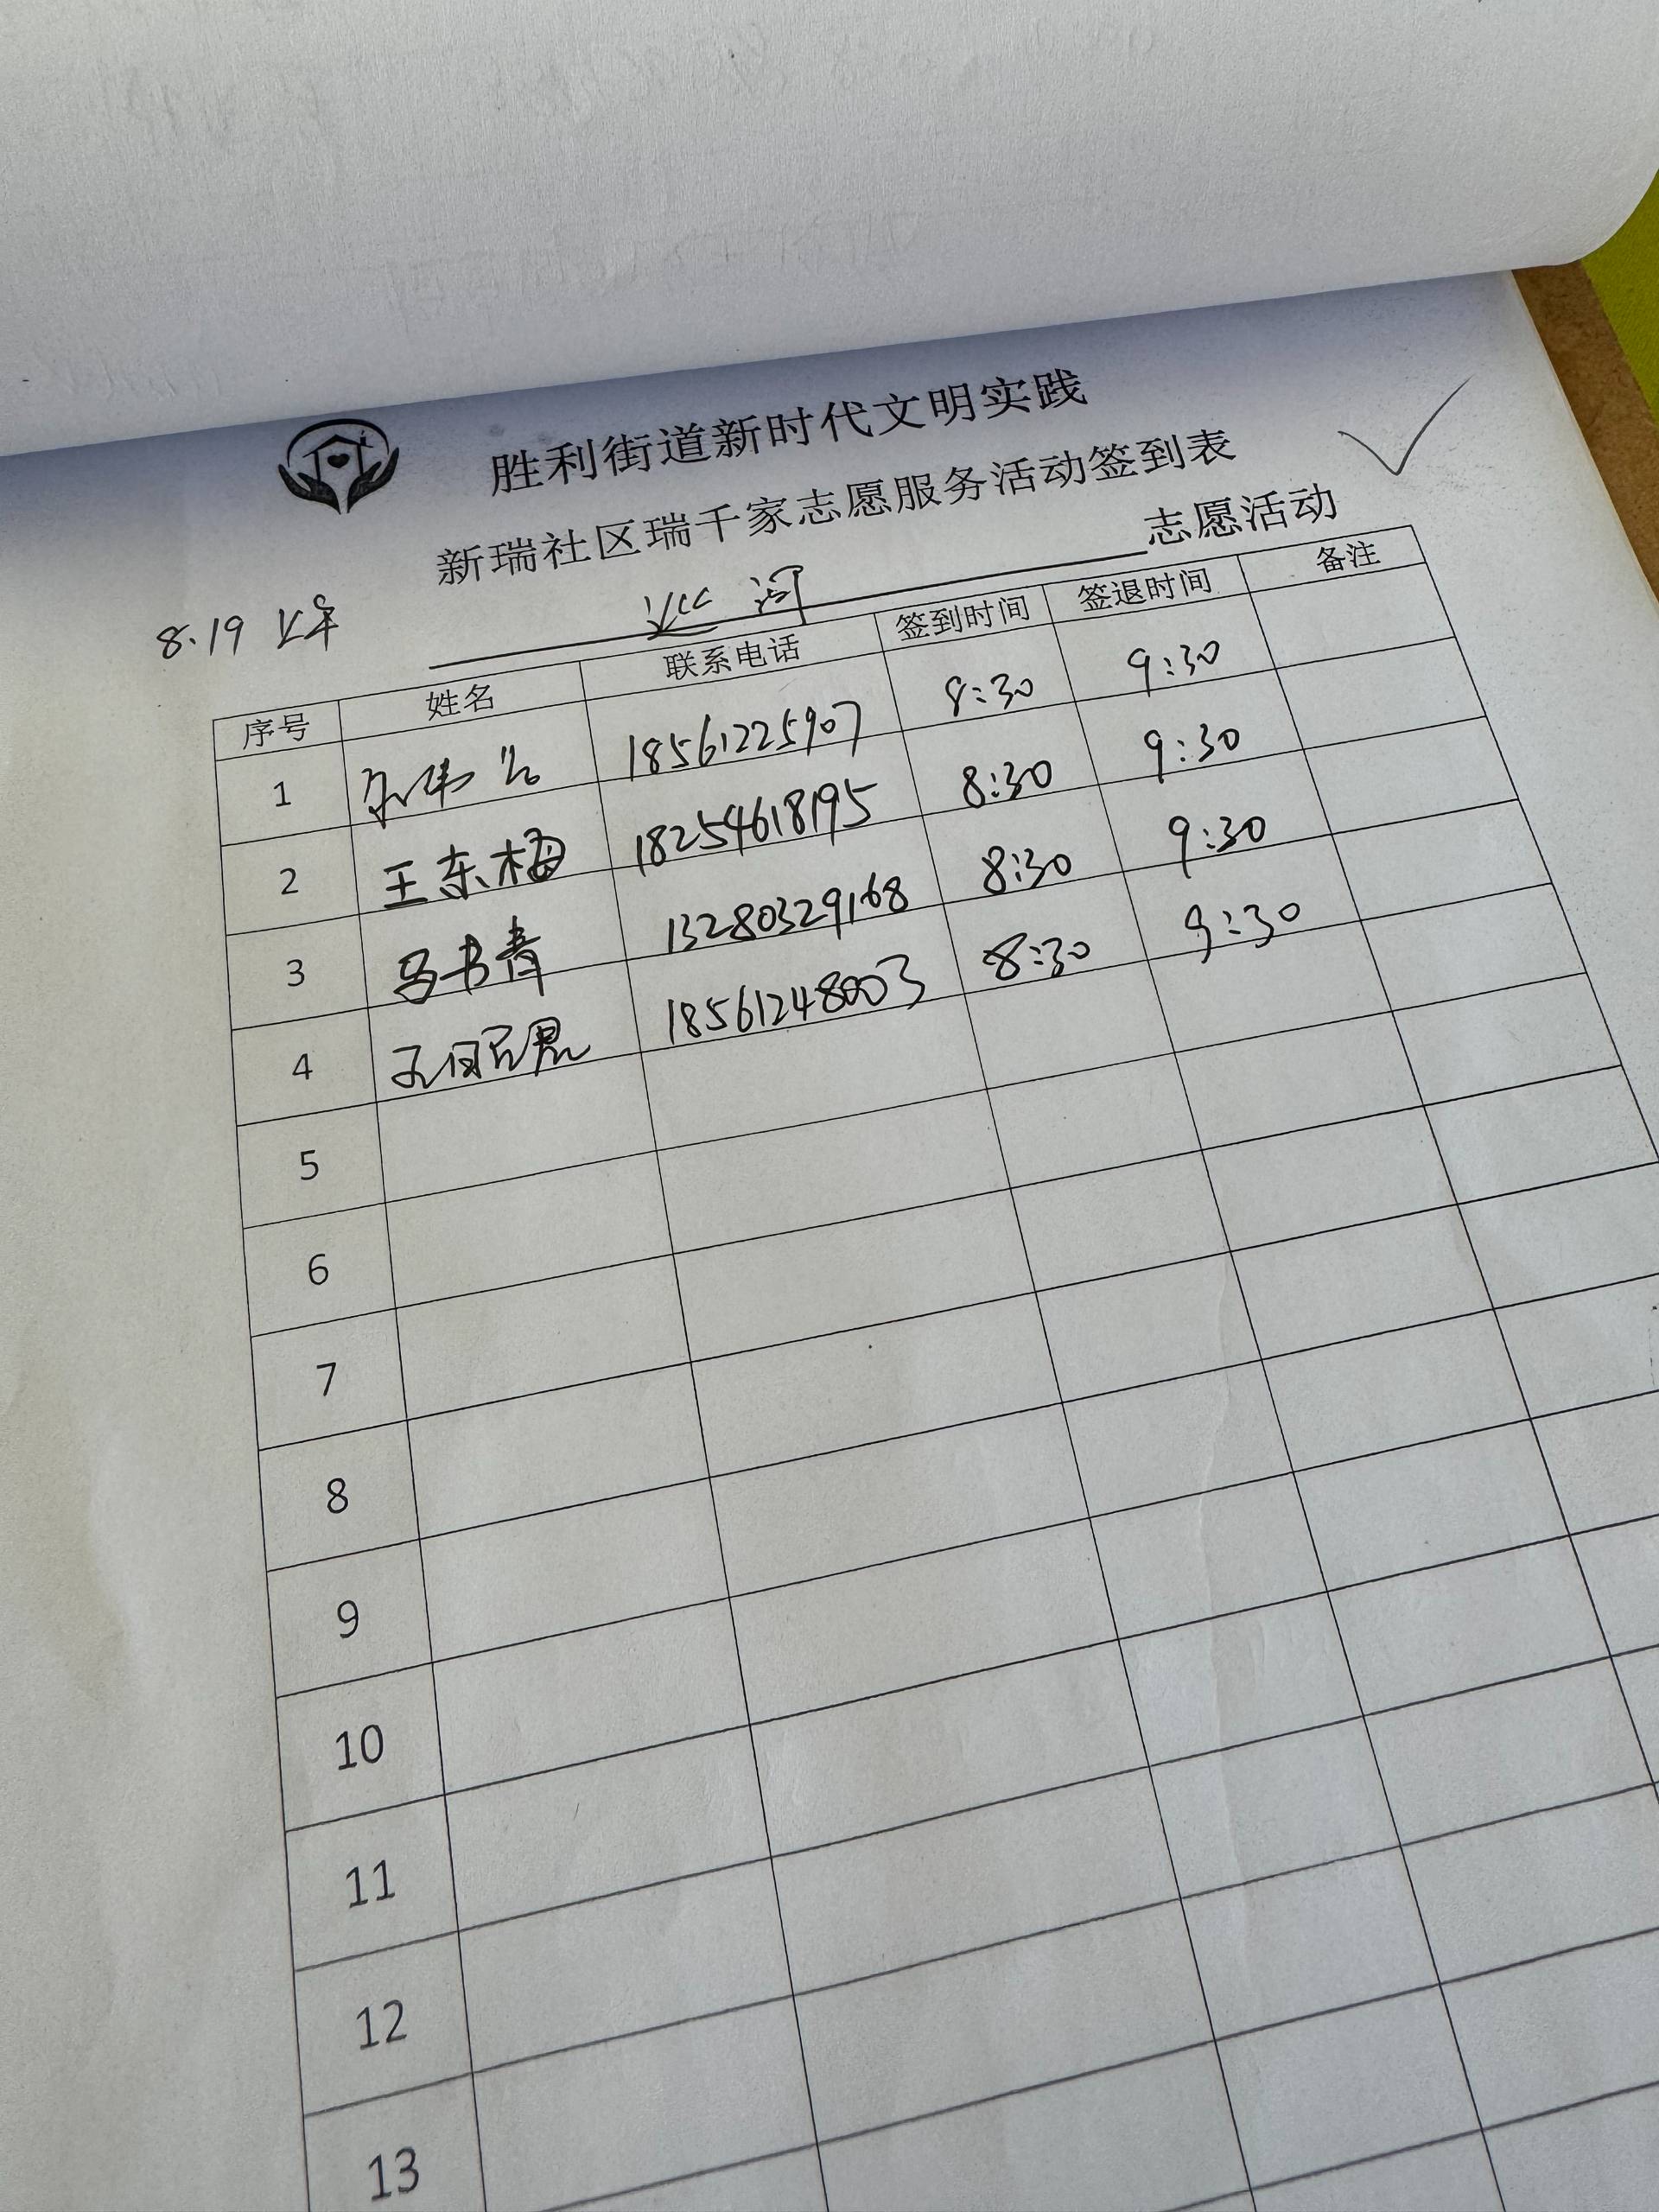 胜利街道新时代文明实践
新瑞社区瑞千家志愿服务活动签到表
巡河 志愿活动
8.19 上午
序号 姓名 联系电话 签到时间 签退时间 备注
1 18561225907 8:30 9:30
2 王东梅 18254618195 8:30 9:30
3 马书青 13280329168 8:30 9:30
4 18561248003 8:30 9:30
5
6
7
8
9
10
11
12
13